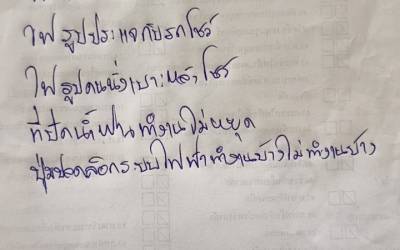 ไฟรูปประแจกับรถโชว์
ไฟรูปคนนั่งเบาะหลังโชว์
ที่ปัดน้ำฝนทำงานไม่หยุด
ปุ่มปลดล็อกระบบไฟฟ้าทำงานบ้างไม่ทำงานบ้าง